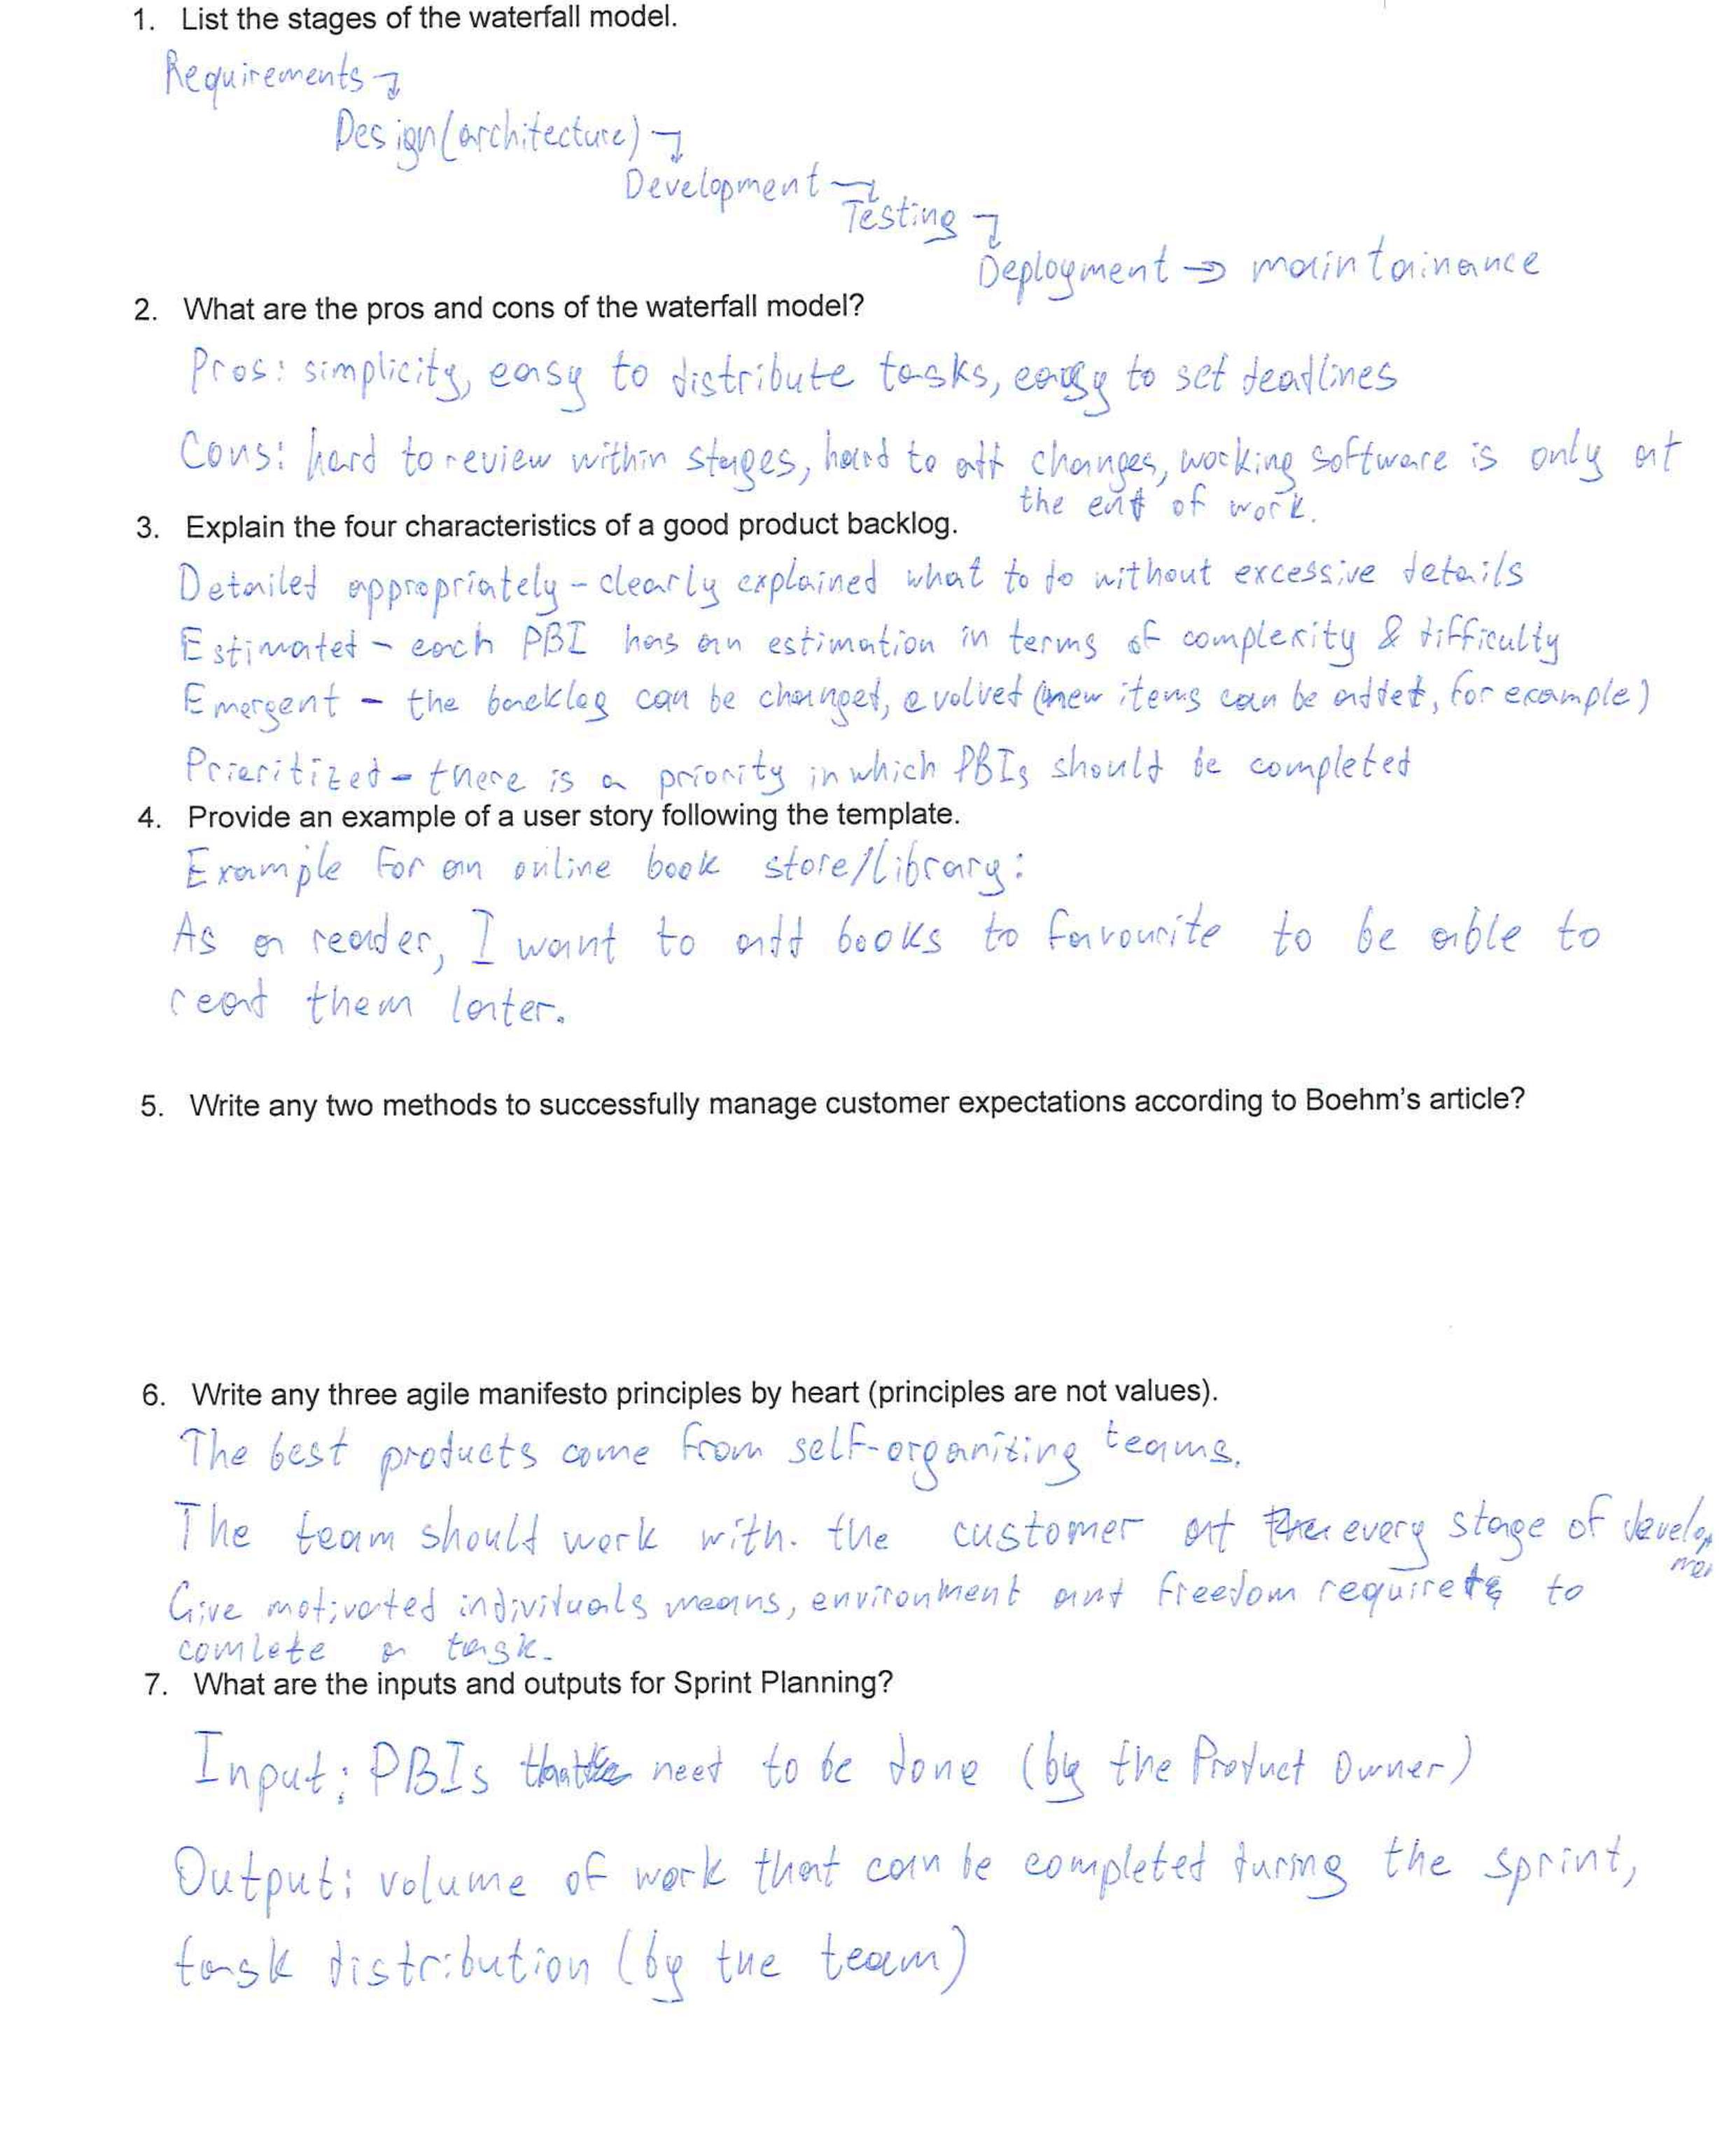 1. List the stages of the waterfall model.
Requirements →
Design (architecture) →
Development →
Testing →
Deployment → maintainance
2. What are the pros and cons of the waterfall model?
Pros: simplicity, easy to distribute tasks, easy to set deadlines
Cons: hard to review within stages, hard to add changes, working software is only at
the end of work.
3. Explain the four characteristics of a good product backlog.
Detailed appropriately - clearly explained what to do without excessive details
Estimated - each PBI has an estimation in terms of complexity & difficulty
Emergent - the backlog can be changed, evolved (new items can be added, for example)
Prioritized - there is a priority in which PBIs should be completed
4. Provide an example of a user story following the template.
Example for an online book store/library:
As a reader, I want to add books to favourite to be able to
read them later.
5. Write any two methods to successfully manage customer expectations according to Boehm's article?
6. Write any three agile manifesto principles by heart (principles are not values).
The best products come from self-organizing teams.
The team should work with the customer at every stage of develop
Give motivated individuals means, environment and freedom required to
comlete a task.
7. What are the inputs and outputs for Sprint Planning?
Input: PBIs that need to be done (by the Product Owner)
Output: volume of work that can be completed during the sprint,
task distribution (by the team)